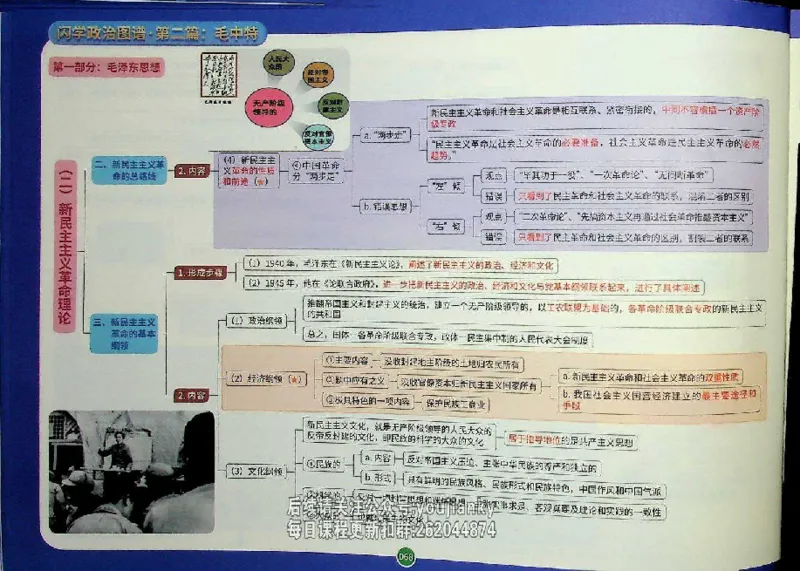 闪学政治图谱·第二篇：毛中特
第一部分：毛泽东思想
人民大众的
反对帝国主义
无产阶级领导的
反对封建主义
反对官僚资本主义
（二）新民主主义革命理论
二、新民主主义革命的总路线
2. 内容
（4）新民主主义革命的性质和前途（★）
④中国革命分“两步走”
a. “两步走”
新民主主义革命和社会主义革命是相互联系、紧密衔接的，中间不容横插一个资产阶级专政
“民主主义革命是社会主义革命的必要准备，社会主义革命是民主主义革命的必然趋势。”
b. 错误思想
“左”倾
观点
“毕其功于一役”、“一次革命论”、“无间断革命”
错误
只看到了民主革命和社会主义革命的联系，混淆二者的区别
“右”倾
观点
“二次革命论”、“先搞资本主义再通过社会革命推翻资本主义”
错误
只看到了民主革命和社会主义革命的区别，割裂二者的联系
三、新民主主义革命的基本纲领
1. 形成步骤
（1）1940 年，毛泽东在《新民主主义论》，阐述了新民主主义的政治、经济和文化
（2）1945 年，他在《论联合政府》，进一步把新民主主义的政治、经济和文化与党基本纲领联系起来，进行了具体阐述
2. 内容
（1）政治纲领
推翻帝国主义和封建主义的统治，建立一个无产阶级领导的，以工农联盟为基础的，各革命阶级联合专政的新民主主义
的共和国
总之，国体—各革命阶级联合专政，政体—民主集中制的人民代表大会制度
（2）经济纲领（★）
①主要内容
没收封建地主阶级的土地归农民所有
②题中应有之义
没收官僚资本归新民主主义国家所有
a. 新民主主义革命和社会主义革命的双重性质
b. 我国社会主义国营经济建立的最主要途径和手段
③极具特色的一项内容
保护民族工商业
（3）文化纲领
新民主主义文化，就是无产阶级领导的人民大众的
反帝反封建的文化，即民族的科学的大众的文化
居于指导地位的是共产主义思想
①民族的
a. 内容
反对帝国主义压迫，主张中华民族的尊严和独立的
b. 形式
具有鲜明的民族风格、民族形式和民族特色，中国作风和中国气派
实事求是、客观真理及理论和实践的一致性
后续请关注公众号:youjianky
每日课程更新扣群:262044874
068